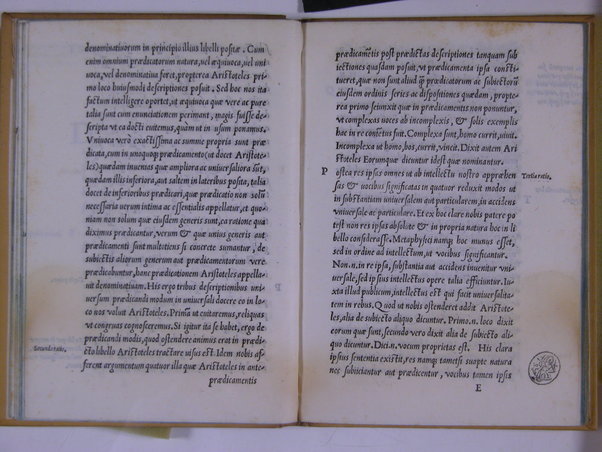 denominatiuorum in principio illius libelli positæ. Cum
enim omnium prædicatorum natura, uel æquiuoca, uel uni
uoca, uel denominatiua foret, propterea Aristoteles pri
mo loco huiusmodi descriptiones posuit. Sed hoc nos ita
factum intelligere oportet, ut æquiuoca quæ uere ac pure
talia sunt cum enunciationem perimant, magis fuisse de-
scripta ut ea docti euitemus, quàm ut in usum ponamus.
Vniuoca uerò exactissima ac summe propria sunt præ
dicata, cum in unoquoq; prædicamento (ut docet Aristote
les) quædam inuenies quæ ampliora ac uniuersaliora sunt,
quædam illis inferiora, aut saltem in lateribus posita, talia
docet de inferioribus prædicari, quæ prædicatio non solũ
necessaria uerum intima ac essentialis appelletur, et quo
niam non solum quæ eiusdem generis sunt, ea ratione qua
diximus prædicantur, uerum & quæ unius generis aut
prædicamenti sunt multotiens si concrete sumantur, de
subiectis aliorum generum aut prædicamentorum uere
prædicabuntur, hanc prædicationem Aristoteles appella-
uit denominatiuam. His ergo tribus descriptionibus uni
uersum prædicandi modum in uniuersali docere eo in lo-
co nos uolut Aristoteles. Primũ ut cuitaremus, reliquas
ut congruas cognosceremus. Si igitur ita se habet, ergo de
prædicandi modis, quod ostendere animus erat in prædi-
Secunda ratio.
cto libello Aristoteles tractare uisus est. Idem nobis af-
ferent argumentum quatuor illa quæ Aristoteles in ante-
prædicamentis
prædicamẽtis post prædictas descriptiones tanquam sub
iectiones quasdam posuit, ut prædicamenta ipsa consti-
tueret, quæ non sunt aliud q̃ prædicatorum ac subiectorũ
eiusdem ordinis series ac dispositiones quædam, propte-
rea primo seiunxit quæ in prædicamentis non ponuntur,
ut complexas uoces ab incomplexis, & solis exemplis
hac in re contẽtus fuit. Complexa sunt, homo currit, uincit.
Incomplexa ut homo, bos, currit, uincit. Dixit autem Ari
stoteles Eorumque dicuntur idest quæ nominantur.
P ostea res ipsas omnes ut ab intellectu nostro appræhen
Tertia ratio.
sas & uocibus significatas in quatuor reduxit modos ut
in substantiam uniuersalem aut particularem, in accidens
uniuersale ac particulare. Et ex hoc clare nobis patere po
test non res ipsas absoluto & in propria natura hoc in li
bello considerasse. Metaphysici namq; hoc munus esset,
sed in ordine ad intellectum, ut uocibus significantur.
Non. n. in re ipsa, substantia aut accidens inuenitur uni-
uersale, sed ipsius intellectus opera talia efficiuntur. Iu-
xta illud publicum, intellectus est qui facit uniuersalita-
tem in rebus. Quod ut nobis ostenderet addit Aristote-
les, alia de subiecto aliquo dicuntur. Primo. n. loco dixit
eorum quæ sunt, secundo uero dixit alia de subiecto ali-
quo dicuntur. Dici. n. uocum proprietas est. His clara
ipsius sententia existit, res namq; tametsi suapte natura
nec subiiciantur aut prædicentur, uocibus tamen ipsis
E